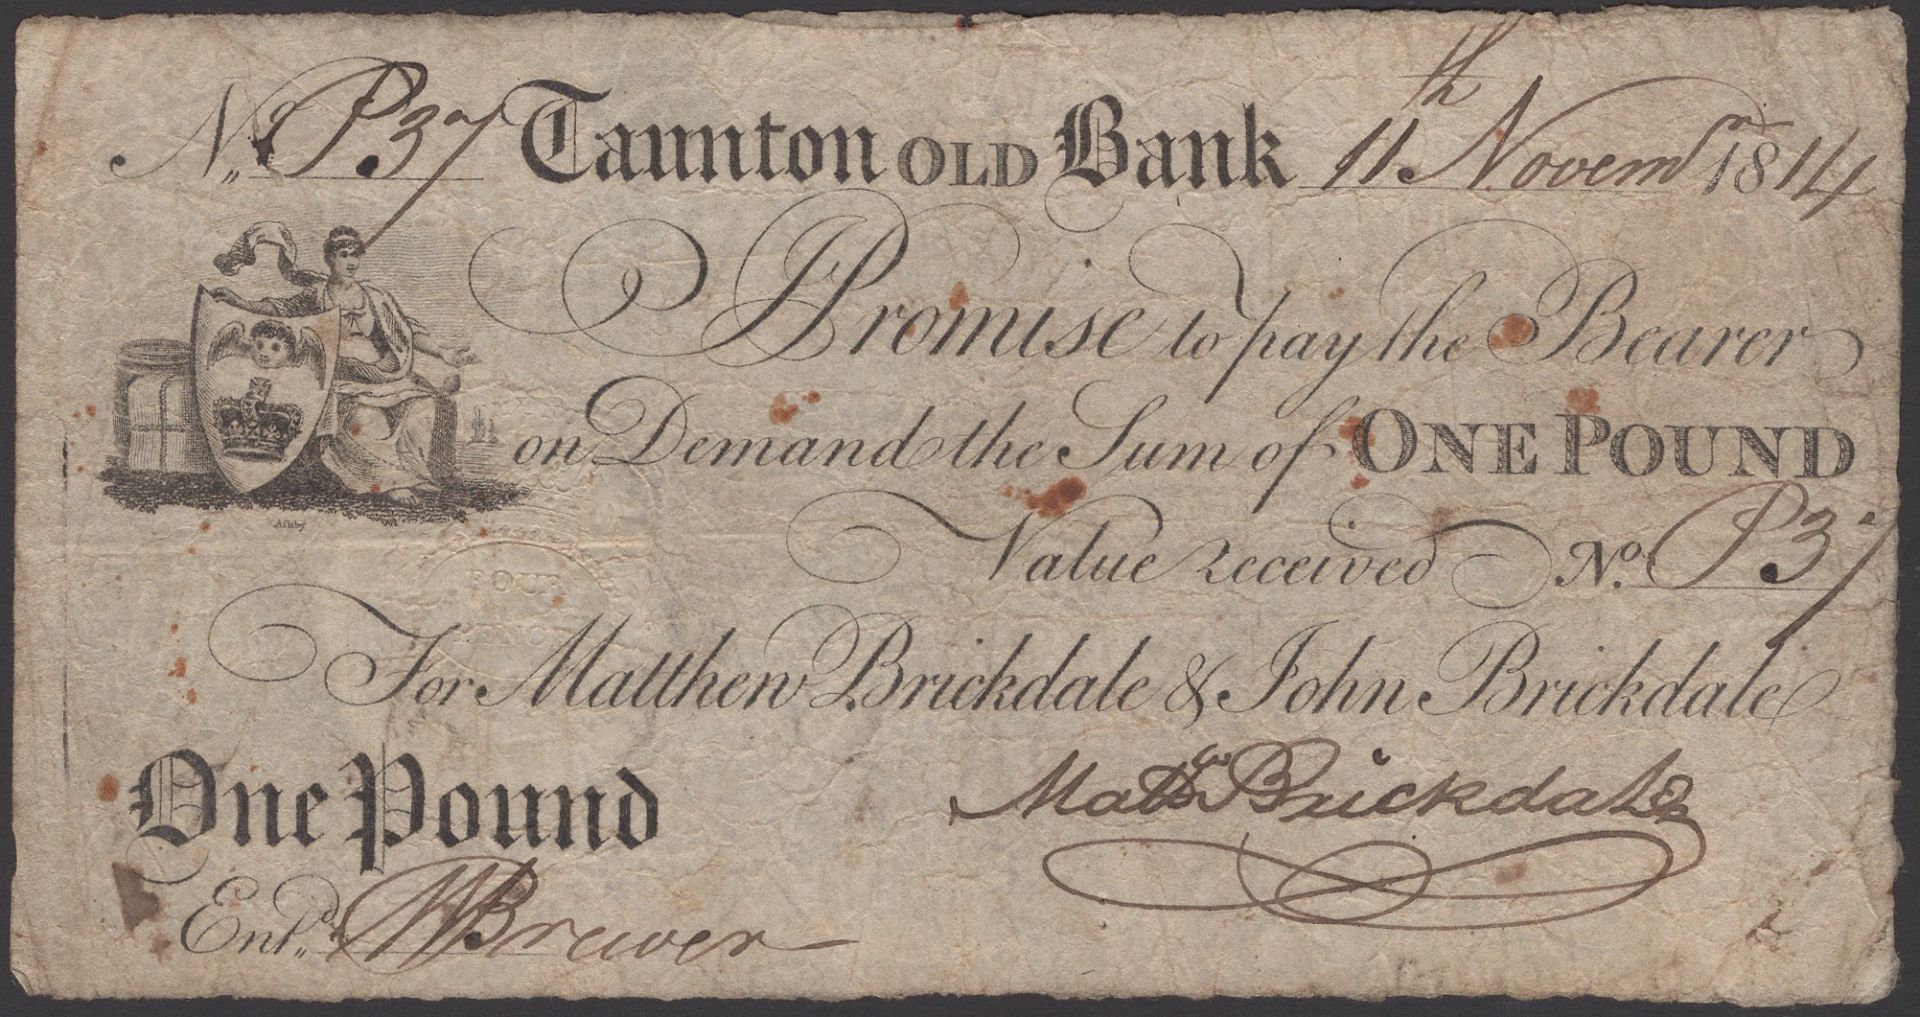 No. P37 Taunton OLD Bank 11th Novemr 1814
I Promise to pay the Bearer
on Demand the Sum of ONE POUND
Value received No. P37
Ashby
FOUR
PENCE
For Matthew Brickdale & John Brickdale
One Pound
Mattw Brickdale
Entd. W Brewer